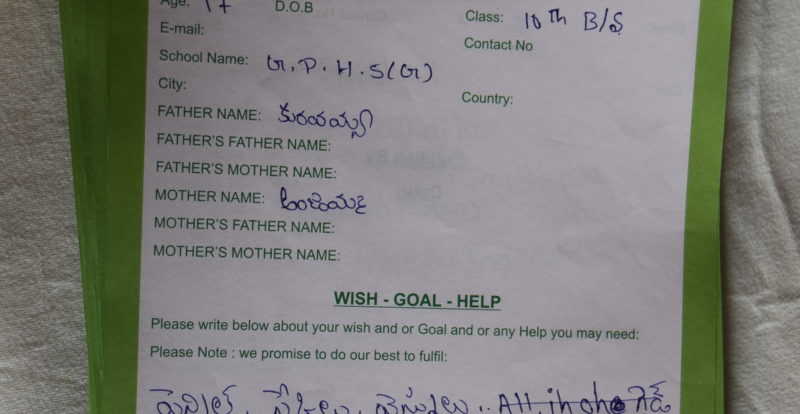 Age: 17 D.O.B
Class: 10th B/S
E-mail:
Contact No
School Name: G.P.H.S(G)
City:
Country:
FATHER NAME:
FATHER'S FATHER NAME:
FATHER'S MOTHER NAME:
MOTHER NAME:
MOTHER'S FATHER NAME:
MOTHER'S MOTHER NAME:
WISH - GOAL - HELP
Please write below about your wish and or Goal and or any Help you may need:
Please Note : we promise to do our best to fulfil:
All in one